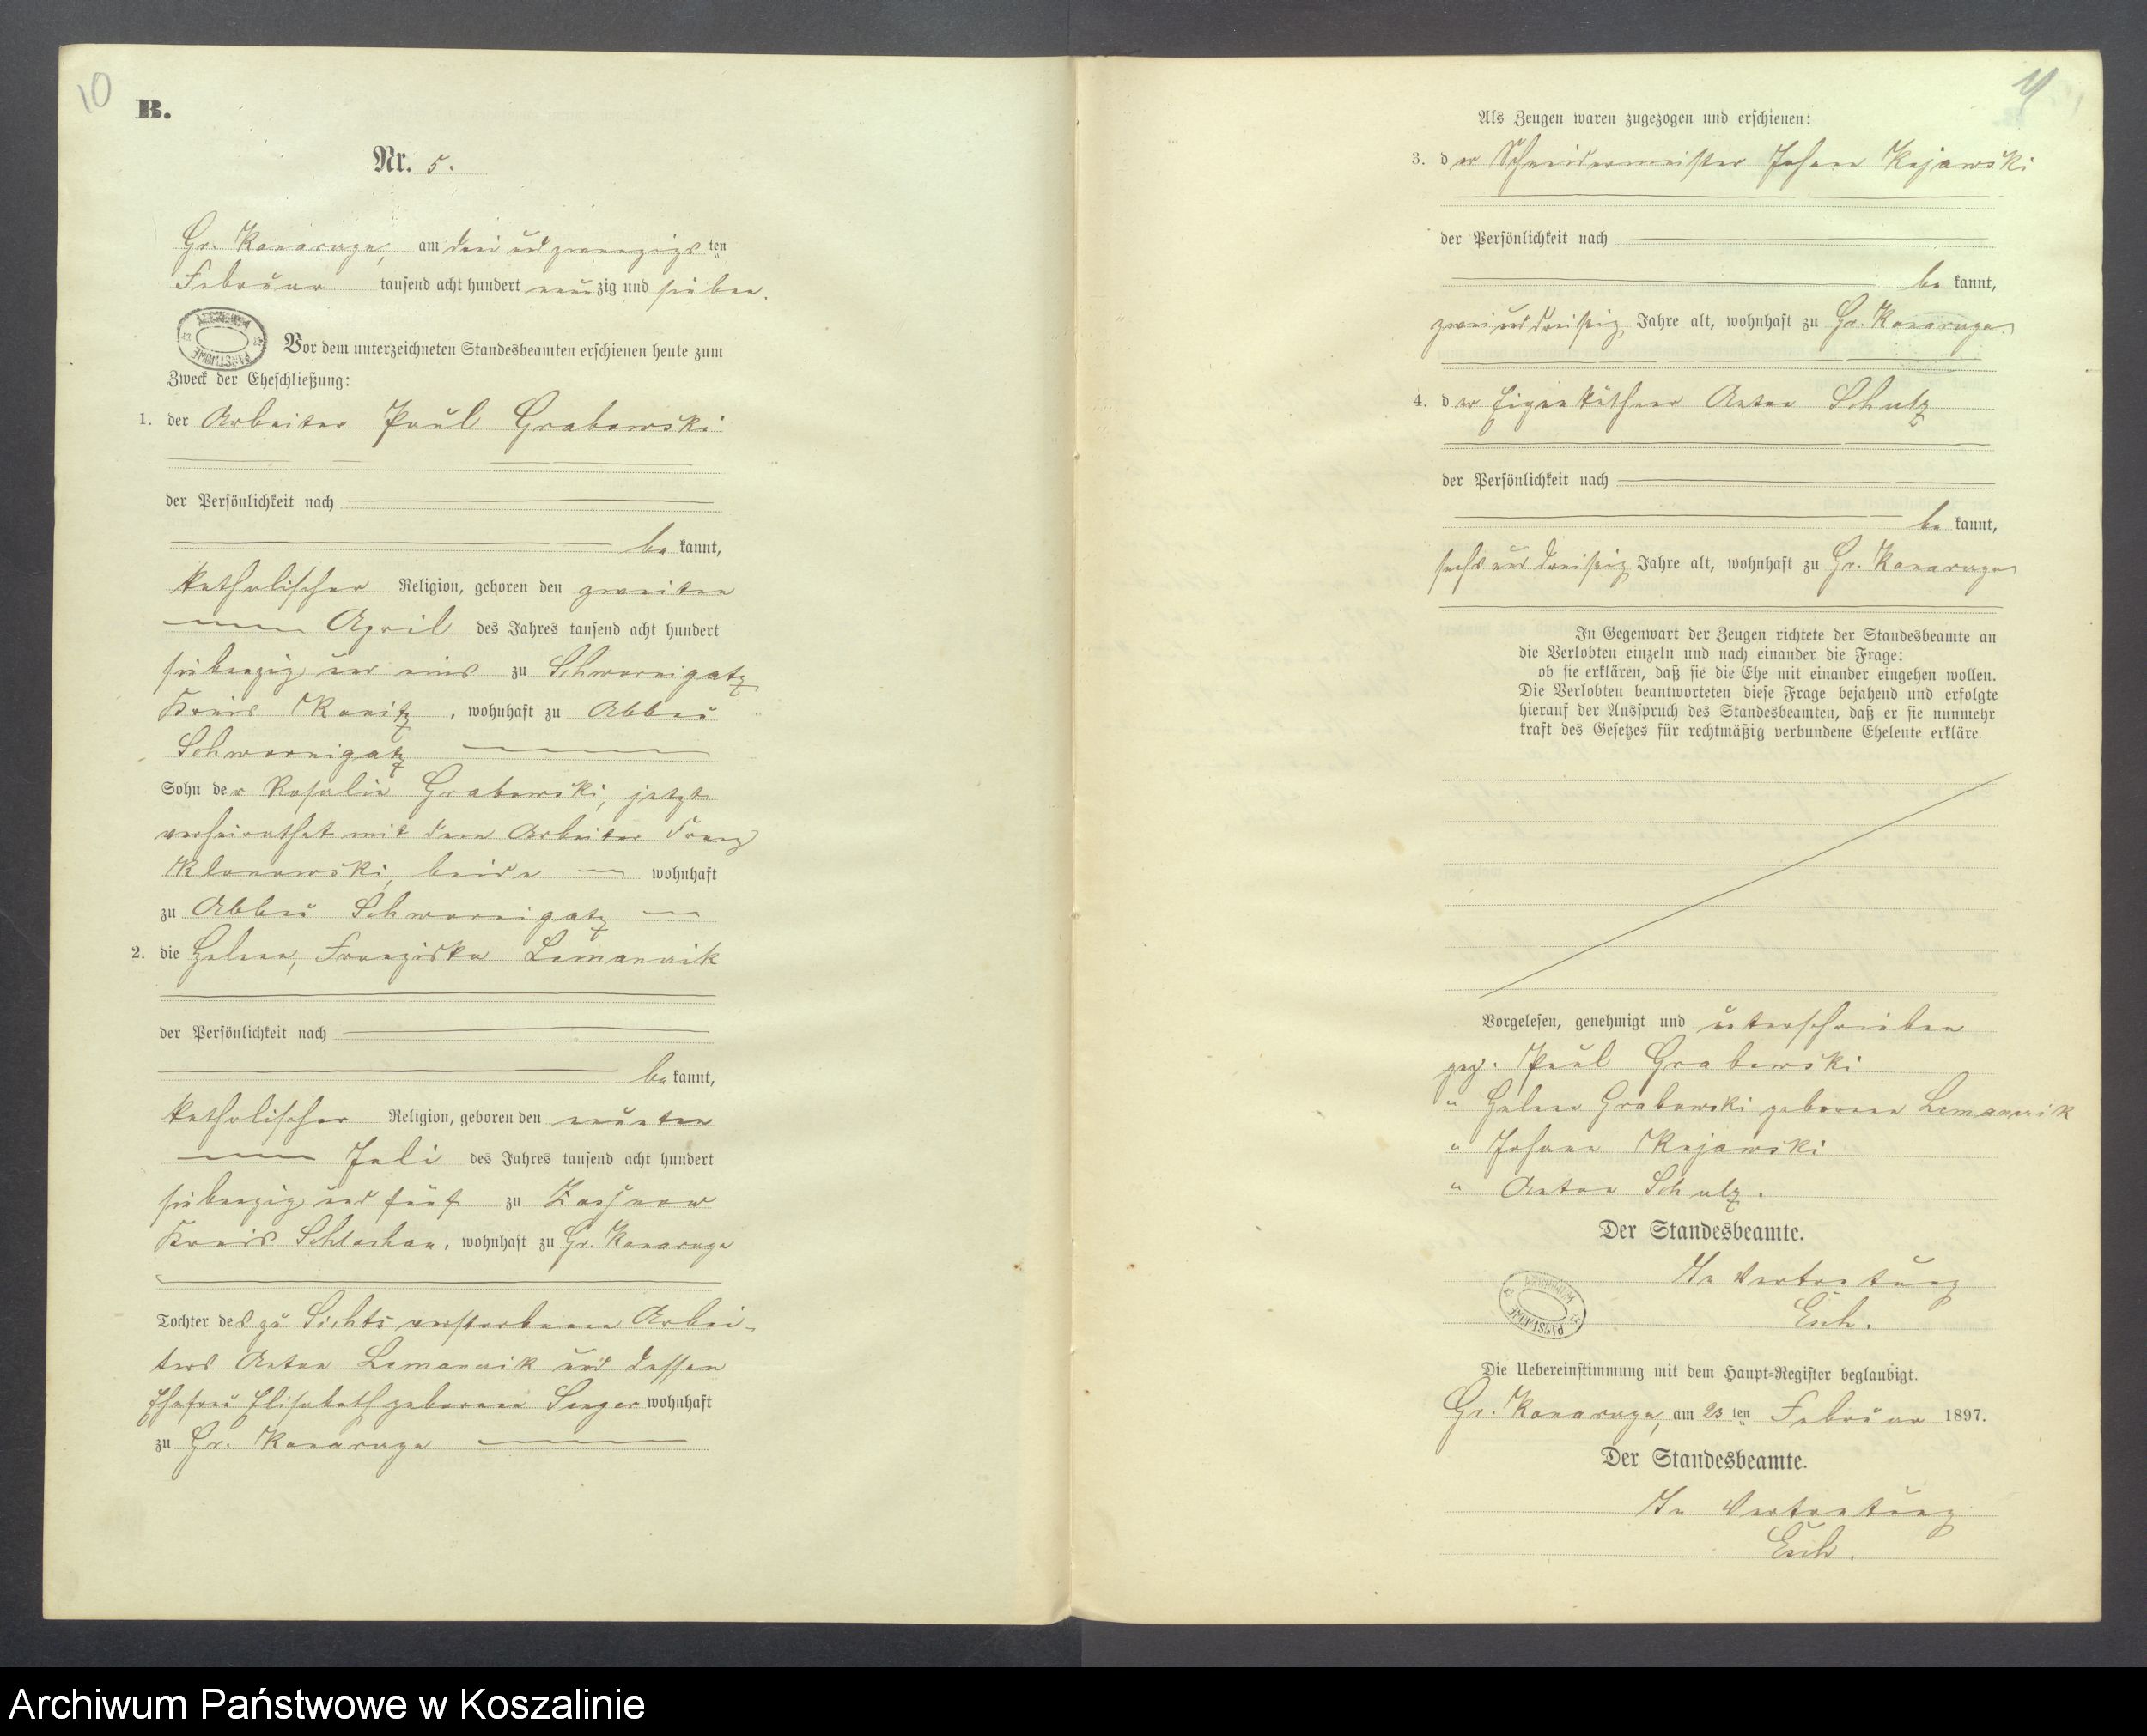 10
B.
Nr. 5.
Gr. Konarczyn, am drei und zwanzigs ten
Februar tausend acht hundert neunzig und sieben.
Vor dem unterzeichneten Standesbeamten erschienen heute zum
Zweck der Eheschließung:
1. der Arbeiter Paul Grabowski
der Persönlichkeit nach
be kannt,
katholischer Religion, geboren den zweiten
April des Jahres tausend acht hundert
siebenzig und eins zu Schwornigatz
Kreis Konitz, wohnhaft zu Abbau
Schwornigatz
Sohn der Rosalie Grabowski, jetzt
verheirathet mit dem Arbeiter Franz
Klonowski, beide wohnhaft
zu Abbau Schwornigatz
2. die Helene, Franziska Lemanczik
der Persönlichkeit nach
be kannt,
katholischer Religion, geboren den neunten
Juli des Jahres tausend acht hundert
siebenzig und fünf zu
Kreis Schlochau, wohnhaft zu Gr. Konarczyn
Tochter des zu Sichts verstorbenen Arbei-
ters Anton Lemanczik und dessen
Ehefrau Elisabeth geborene Senger wohnhaft
zu Gr. Konarczyn
11
Als Zeugen waren zugezogen und erschienen:
3. der Schneidermeister Johann Kujawski
der Persönlichkeit nach
be kannt,
zwei und dreißig Jahre alt, wohnhaft zu Gr. Konarczyn
4. der Eigenkäthner Anton Schulz
der Persönlichkeit nach
be kannt,
sechs und dreißig Jahre alt, wohnhaft zu Gr. Konarczyn
In Gegenwart der Zeugen richtete der Standesbeamte an
die Verlobten einzeln und nach einander die Frage:
ob sie erklären, daß sie die Ehe mit einander eingehen wollen.
Die Verlobten beantworteten diese Frage bejahend und erfolgte
hierauf der Ausspruch des Standesbeamten, daß er sie nunmehr
kraft des Gesetzes für rechtmäßig verbundene Eheleute erkläre.
Vorgelesen, genehmigt und unterschrieben
gez. Paul Grabowski
" Helene Grabowski geborene Lemanczik
" Johann Kujawski
" Anton Schulz.
Der Standesbeamte.
In Vertretung
Esch.
Die Uebereinstimmung mit dem Haupt-Register beglaubigt.
Gr. Konarczyn, am 23 ten Februar 1897.
Der Standesbeamte.
In Vertretung
Esch.
Archiwum Państwowe w Koszalinie